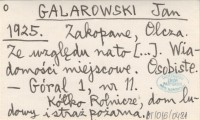 GALAROWSKI Jan
1925. Zakopane, Olcza.
Ze względu na to [...]. Wia-
domości miejscowe. Osobiste.
— Góral 1, nr 11.
Kółko Rolnicze, dom lu-
dowy i straż pożarna.